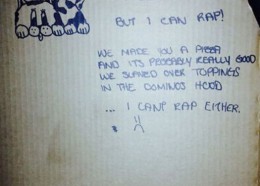 BUT I CAN RAP!
WE MADE YOU A PIZZA
AND ITS PROBABLY REALLY GOOD
WE SLAVED OVER TOPPINGS
IN THE DOMINOS HOOD
... I CANT RAP EITHER.